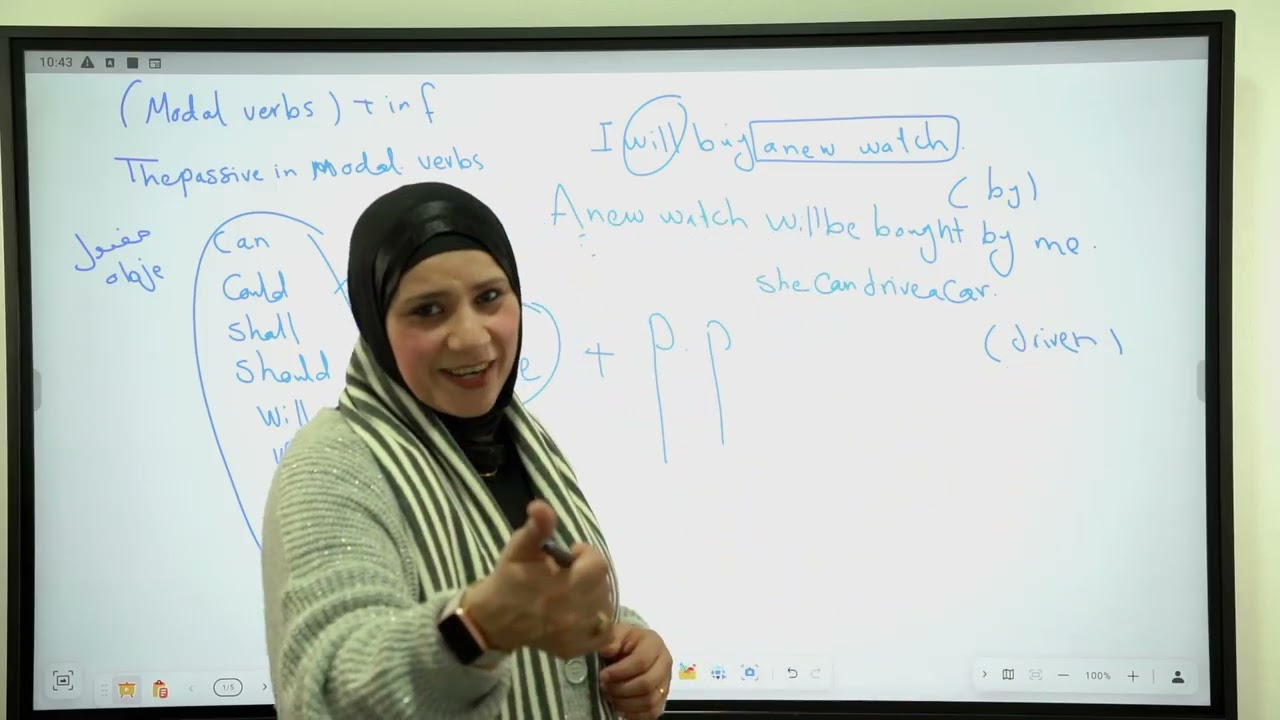 10:43
(Modal verbs) + inf
The passive in modal verbs
مفعول
obje
Can
Could
shall
should
will
e + P.P
I will buy a new watch.
(by)
A new watch will be bought by me.
she can drive a car.
(driven)
1/5
100%